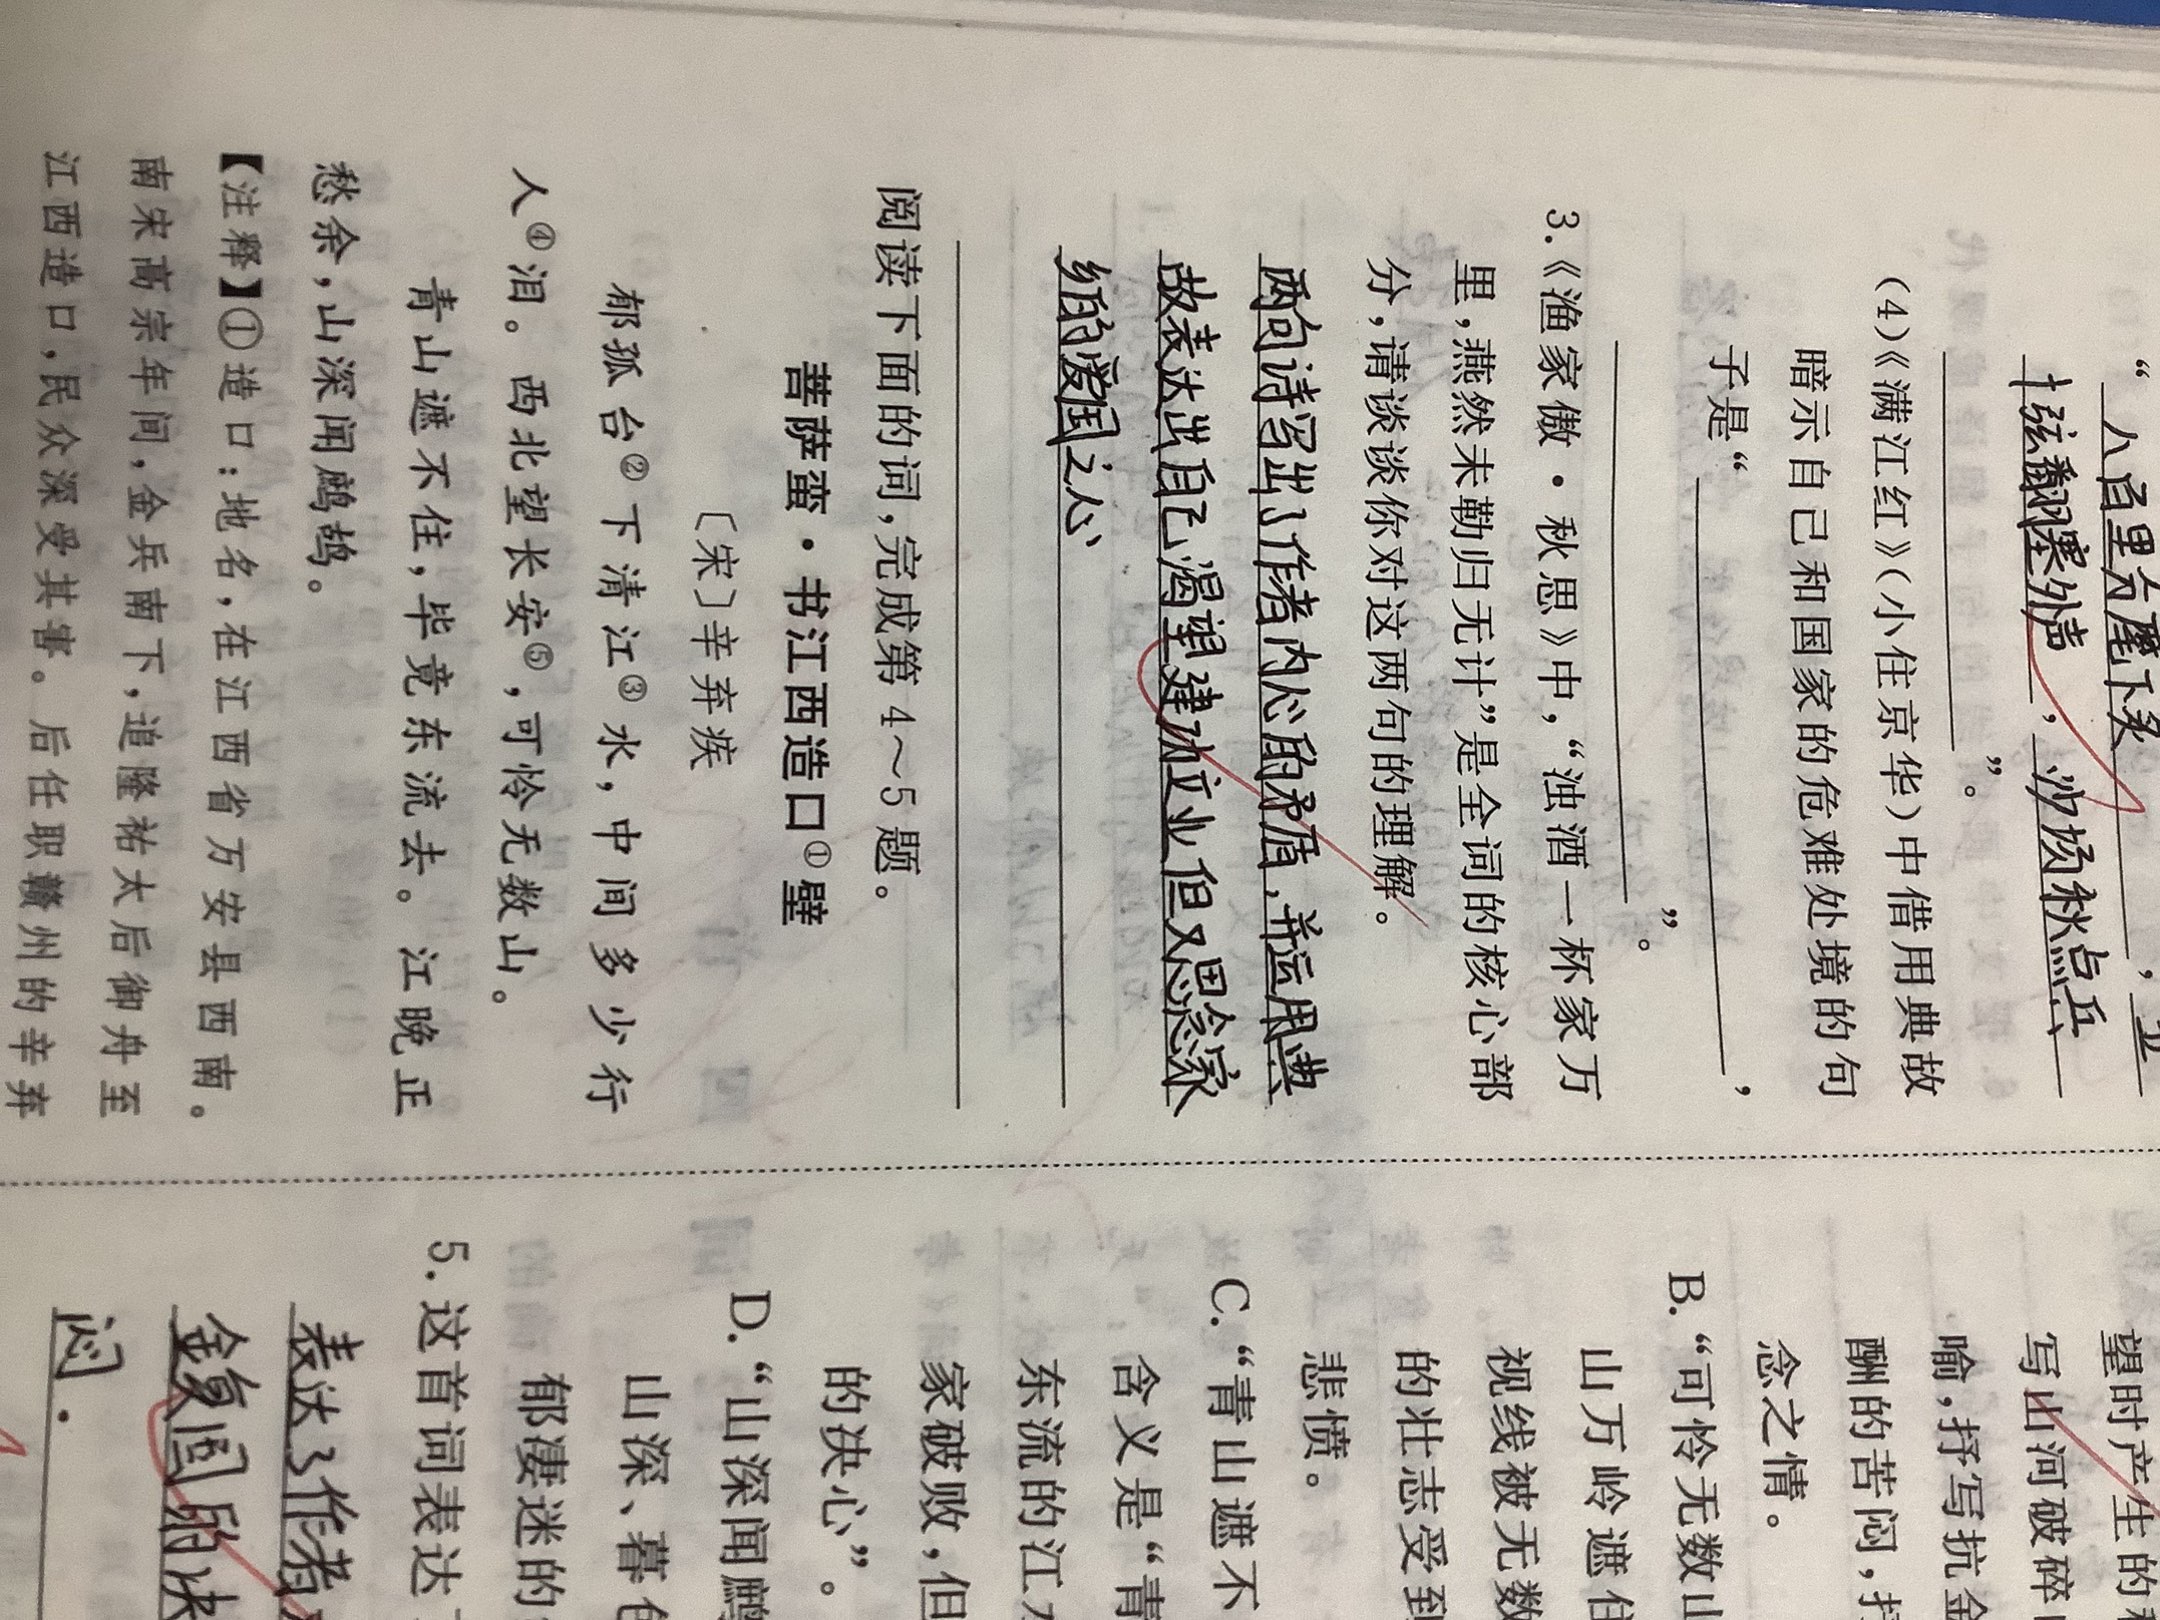 “八百里分麾下炙，
五十弦翻塞外声，沙场秋点兵
”。
(4)《满江红》(小住京华)中借用典故
暗示自己和国家的危难处境的句
子是“，
”。
3.《渔家傲·秋思》中，“浊酒一杯家万
里，燕然未勒归无计”是全词的核心部
分，请谈谈你对这两句的理解。
两句诗写出了作者内心的矛盾，并运用典
故表达出自己渴望建功立业但又思念家
乡的爱国之心
阅读下面的词，完成第4～5题。
菩萨蛮·书江西造口①壁
〔宋〕辛弃疾
郁孤台②下清江③水，中间多少行
人④泪。西北望长安⑤，可怜无数山。
青山遮不住，毕竟东流去。江晚正
愁余，山深闻鹧鸪。
【注释】①造口：地名，在江西省万安县西南。
南宋高宗年间，金兵南下，追隆祐太后御舟至
江西造口，民众深受其害。后任职赣州的辛弃
望时产生的
写山河破碎
喻，抒写抗金
酬的苦闷，抒
念之情。
B.“可怜无数山
山万岭遮住
视线被无数
的壮志受到
悲愤。
C.“青山遮不
含义是“青
东流的江水
家破败，但
的决心”。
D.“山深闻鹧
山深、暮色
郁凄迷的
5.这首词表达
表达了作者
金复国的决
闷.